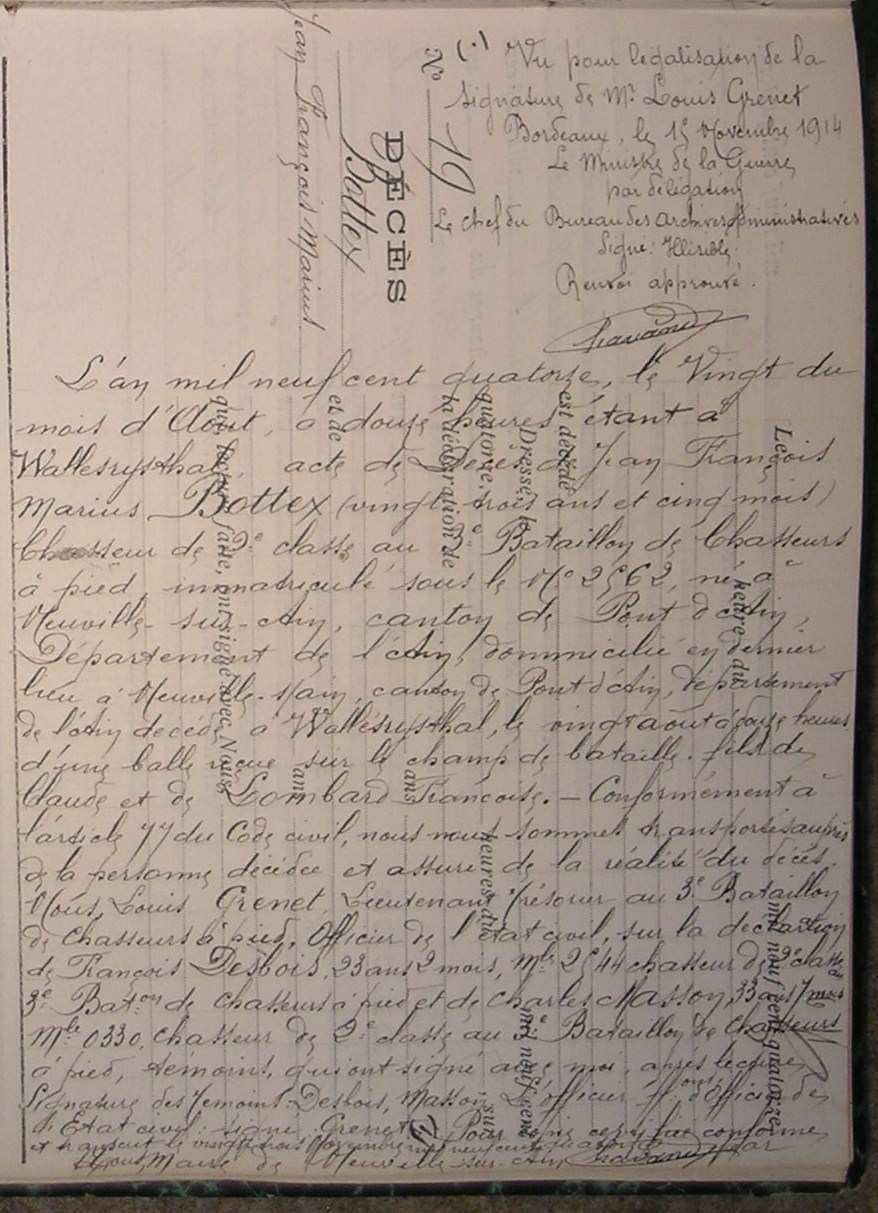 (1) Vu pour légalisation de la
signature de Mr Louis Grenet
Bordeaux, le 15 Novembre 1914
Le Ministre de la Guerre
par délégation
Le Chef du Bureau des Archives Administratives
Signé: Illisible.
Renvoi approuvé.
N° 19
DÉCÈS
Bottex
Jean François Marius
L'an mil neuf cent quatorze, le Vingt du
mois d'Août, à douze heures étant à
Wallérysthal, acte de Décès de Jean François
Marius Bottex (vingt-trois ans et cinq mois)
Chasseur de 2e classe au 3e Bataillon de Chasseurs
à pied, immatriculé sous le No 2562, né à
Neuville-sur-Ain, canton de Pont d'Ain,
Département de l'Ain, dommicilié en dernier
lieu à Neuville-s/ain, canton de Pont d'Ain, département
de l'Ain décédé à Wallérysthal, le vingt août à douze heures
d'une balle reçue sur le champ de bataille. fils de
Claude et de Lombard Françoise. — Conformément à
l'article 77 du Code civil, nous nous sommes transportés auprès
de la personne décédée et assuré de la réalité du décès.
Nous, Louis Grenet, Lieutenant Trésorier au 3e Bataillon
de Chasseurs à pied, Officier de l'état civil, sur la déclaration
de François Desbois, 23 ans 2 mois, Mle 2544 chasseur de 2e classe au
3e Baton de chasseurs à pied et de Charles Masson, 33 ans 7 mois
Mle 0330, chasseur de 2e classe au 3e Bataillon de Chasseurs
à pied, témoins, qui ont signé avec moi, après lecture,
Signature des Témoins: Desbois, Masson L'officier ff. d'officier de
l'Etat civil: signé: Grenet. Pour copie certifiée conforme
et transcrit le vingt trois Novembre mil neuf cent quatorze par
Nous, Maire de Neuville-sur-Ain
Le
heure du
mil neuf cent quatorze
est décédé
Dressé le
mil neuf cent
quatorze,
heures du
sur
la déclaration de
ans
et de
ans
qui, lecture faite, ont signé avec Nous